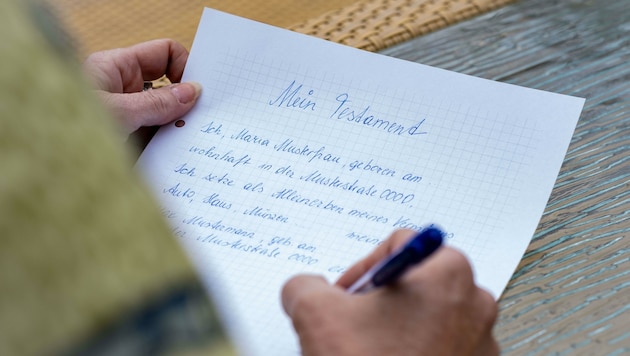 Mein Testament
Ich, Maria Musterfrau, geboren am
wohnhaft in der Musterstraße 0000.
Ich setze als Alleinerben meines Vermögens
Auto, Haus, Münzen mein
Mustermann, geb. am
Musterstraße 0000